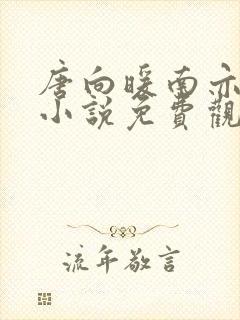 唐向暖南亦
小說免費觀
流年敬言